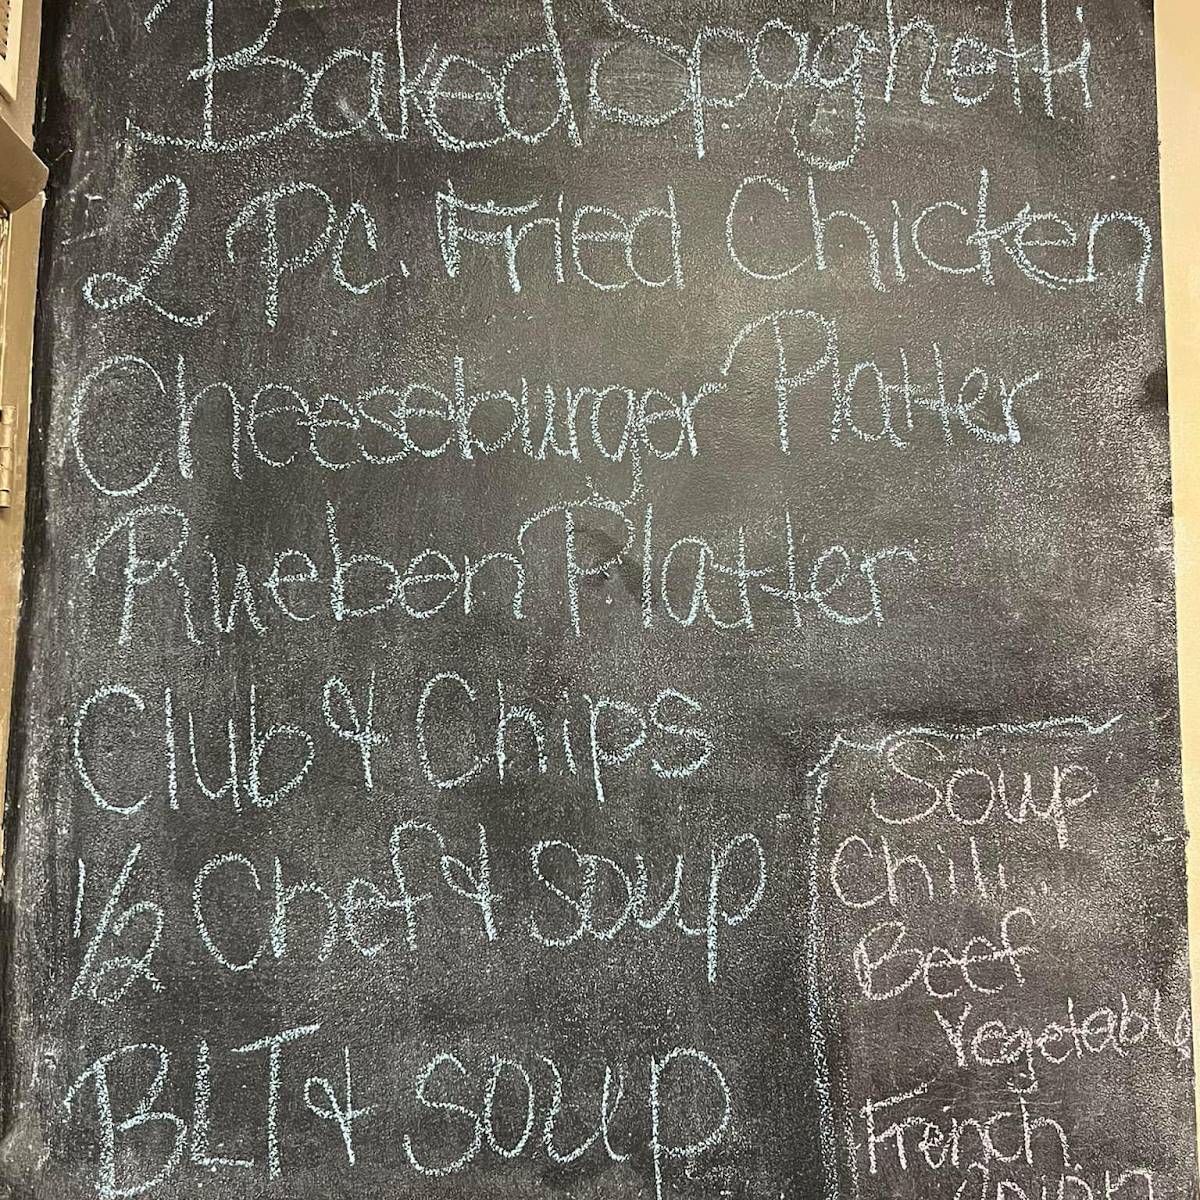 Baked Spaghetti
2 Pc. Fried Chicken
Cheeseburger Platter
Rueben Platter
Club & Chips
1/2 Chef & Soup
BLT & Soup
Soup
Chili
Beef
Vegetable
French